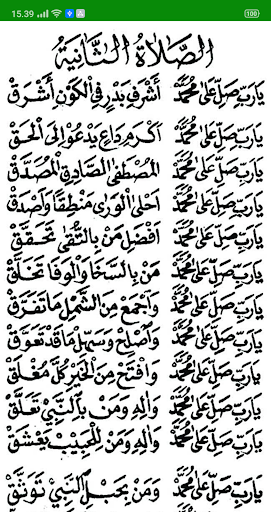 15.39 100
الصَّلَاةُ الثَّانِيَةُ
يَارَبِّ صَلِّ عَلَى مُحَمَّدْ أَشْرَفِ بَدْرٍ فِي الْكَوْنِ أَشْرَقْ
يَارَبِّ صَلِّ عَلَى مُحَمَّدْ أَكْرَمِ دَاعٍ يَدْعُو إِلَى الْحَقْ
يَارَبِّ صَلِّ عَلَى مُحَمَّدْ الْمُصْطَفَى الصَّادِقِ الْمُصَدَّقْ
يَارَبِّ صَلِّ عَلَى مُحَمَّدْ أَحْلَى الْوَرَى مَنْطِقًا وَأَصْدَقْ
يَارَبِّ صَلِّ عَلَى مُحَمَّدْ أَفْضَلِ مَنْ بِالتُّقَى تَحَقَّقْ
يَارَبِّ صَلِّ عَلَى مُحَمَّدْ مَنْ بِالسَّخَا وَالْوَفَا تَخَلَّقْ
يَارَبِّ صَلِّ عَلَى مُحَمَّدْ وَاجْمَعْ مِنَ الشَّمْلِ مَا تَفَرَّقْ
يَارَبِّ صَلِّ عَلَى مُحَمَّدْ وَأَصْلِحْ وَسَهِّلْ مَا قَدْ تَعَوَّقْ
يَارَبِّ صَلِّ عَلَى مُحَمَّدْ وَافْتَحْ مِنَ الْخَيْرِ كُلَّ مُغْلَقْ
يَارَبِّ صَلِّ عَلَى مُحَمَّدْ وَآلِهِ وَمَنْ بِالنَّبِيِّ تَعَلَّقْ
يَارَبِّ صَلِّ عَلَى مُحَمَّدْ وَآلِهِ وَمَنْ لِلْحَبِيبِ يَعْشَقْ
يَارَبِّ صَلِّ عَلَى مُحَمَّدْ وَمَنْ بِحَبْلِ النَّبِيِّ تَوَثَّقْ